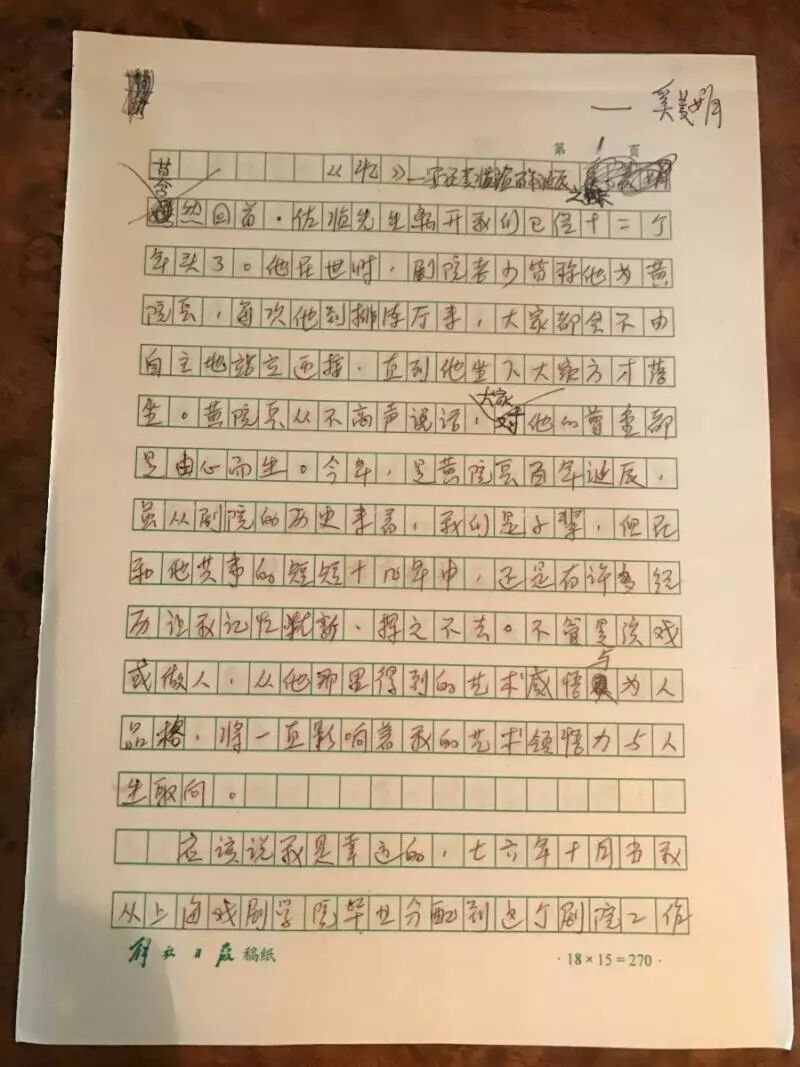 — 奚美娟
第 1 页
《忆》—写在黄佐临百年诞辰之际
蓦然回首,佐临先生离开我们已经十二个
年头了。他在世时,剧院老少皆称他为黄
院长,每次他到排练厅来,大家都会不由
自主地站立迎接,直到他坐下大家方才落
坐。黄院长从不高声说话,大家对他的尊重却
是由心而生。今年,是黄院长百年诞辰,
虽从剧院的历史来看,我们是小辈,但在
和他共事的短短十几年中,还是有许多经
历让我记忆犹新、挥之不去。不管是演戏
或做人,从他那里得到的艺术感悟与为人
品格,将一直影响着我的艺术领悟力与人
生取向。
应该说我是幸运的,七六年十月当我
从上海戏剧学院毕业分配到这个剧院工作
解放日报 稿纸
·18×15=270·